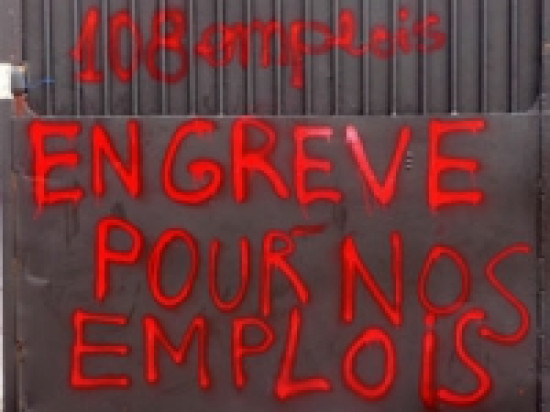 108 emplois
EN GREVE
POUR NOS
EMPLOiS